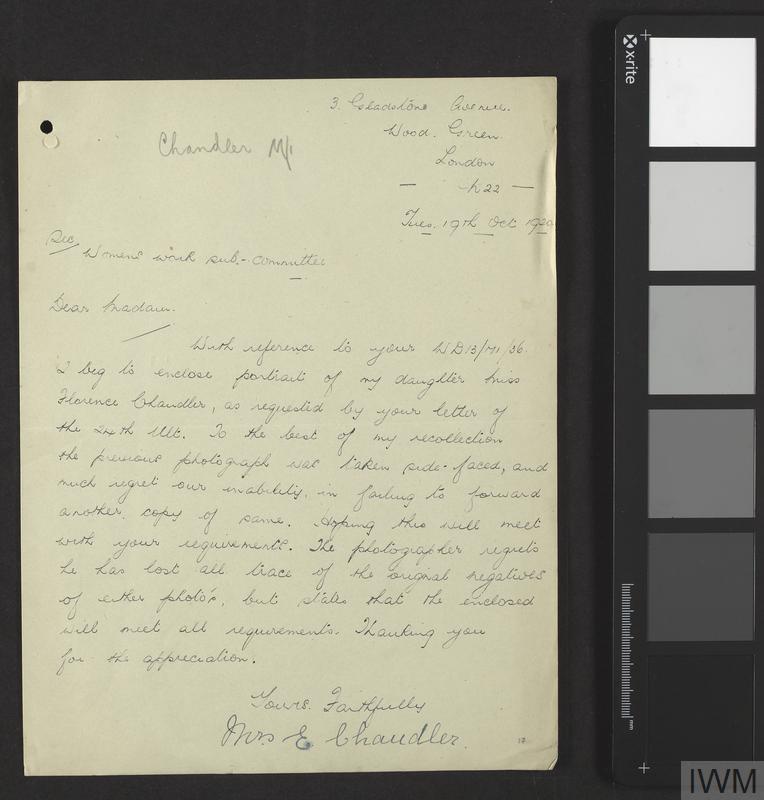 3. Gladstone Avenue.
Wood. Green.
London
— N22 —
Chandler M/1
Tues. 19th Oct 1920
Sec
Womens work sub.-committee
Dear Madam.
With reference to your WD13/M1/36.
I beg to enclose portrait of my daughter Miss
Florence Chandler, as requested by your letter of
the 24th Ult. To the best of my recollection
the previous photograph was taken side-faced, and
much regret our inability, in failing to forward
another copy of same. Hoping this will meet
with your requirements. The photographer regrets
he has lost all trace of the original negatives
of either photo's, but states that the enclosed
will meet all requirements. Thanking you
for the appreciation.
Yours. Faithfully
Mrs E Chandler.
x·rite
mm
IWM